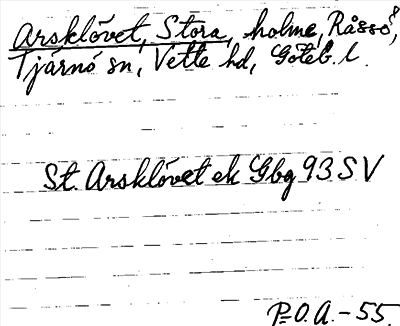 Arsklövet, Stora, holme, Råssö,
Tjärnö sn, Vette hd, Göteb. l.
St. Arsklövet ek Gbg 93 SV
P-O.A. - 55.